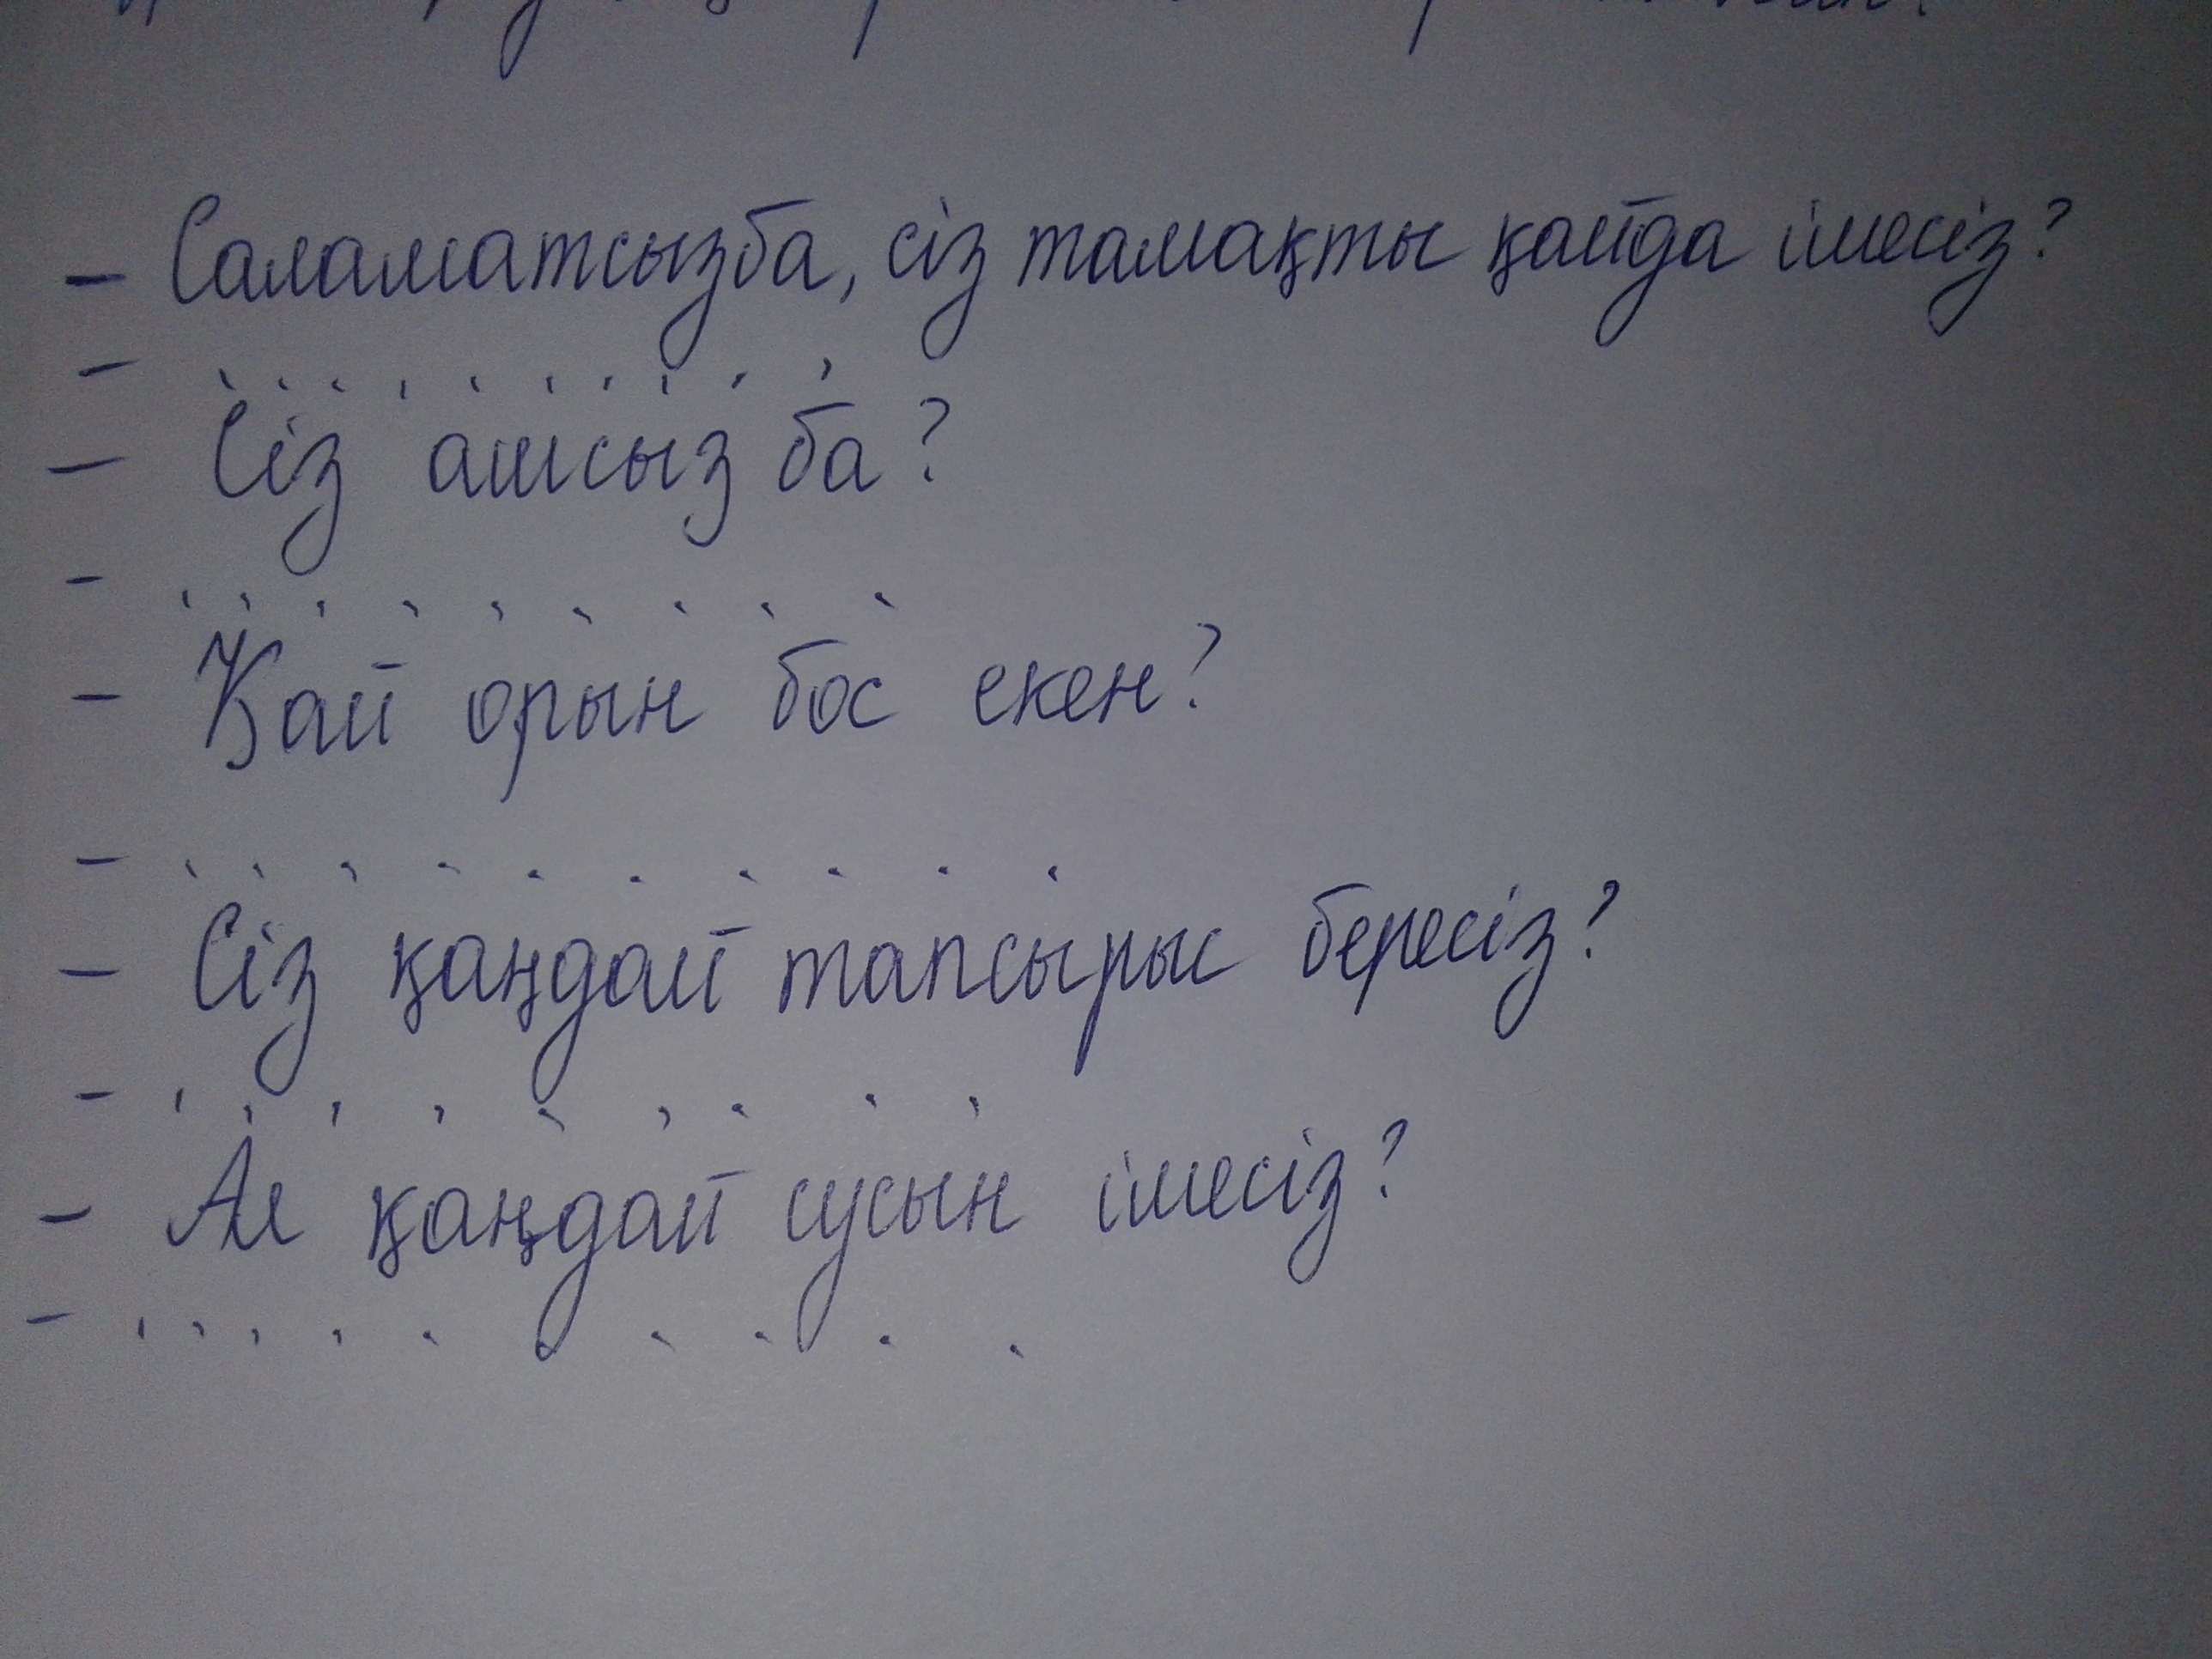 - Саламатсызба, сіз тамақты қайда ішесіз?
- . . . . . . . . . .
- Сіз ашсыз ба?
- . . . . . . . . .
- Қай орын бос екен?
- . . . . . . . . . .
- Сіз қаңдай тапсырыс бересіз?
- . . . . . . . . .
- Ал қаңдай сусын ішесіз?
- . . . . . . . . . .